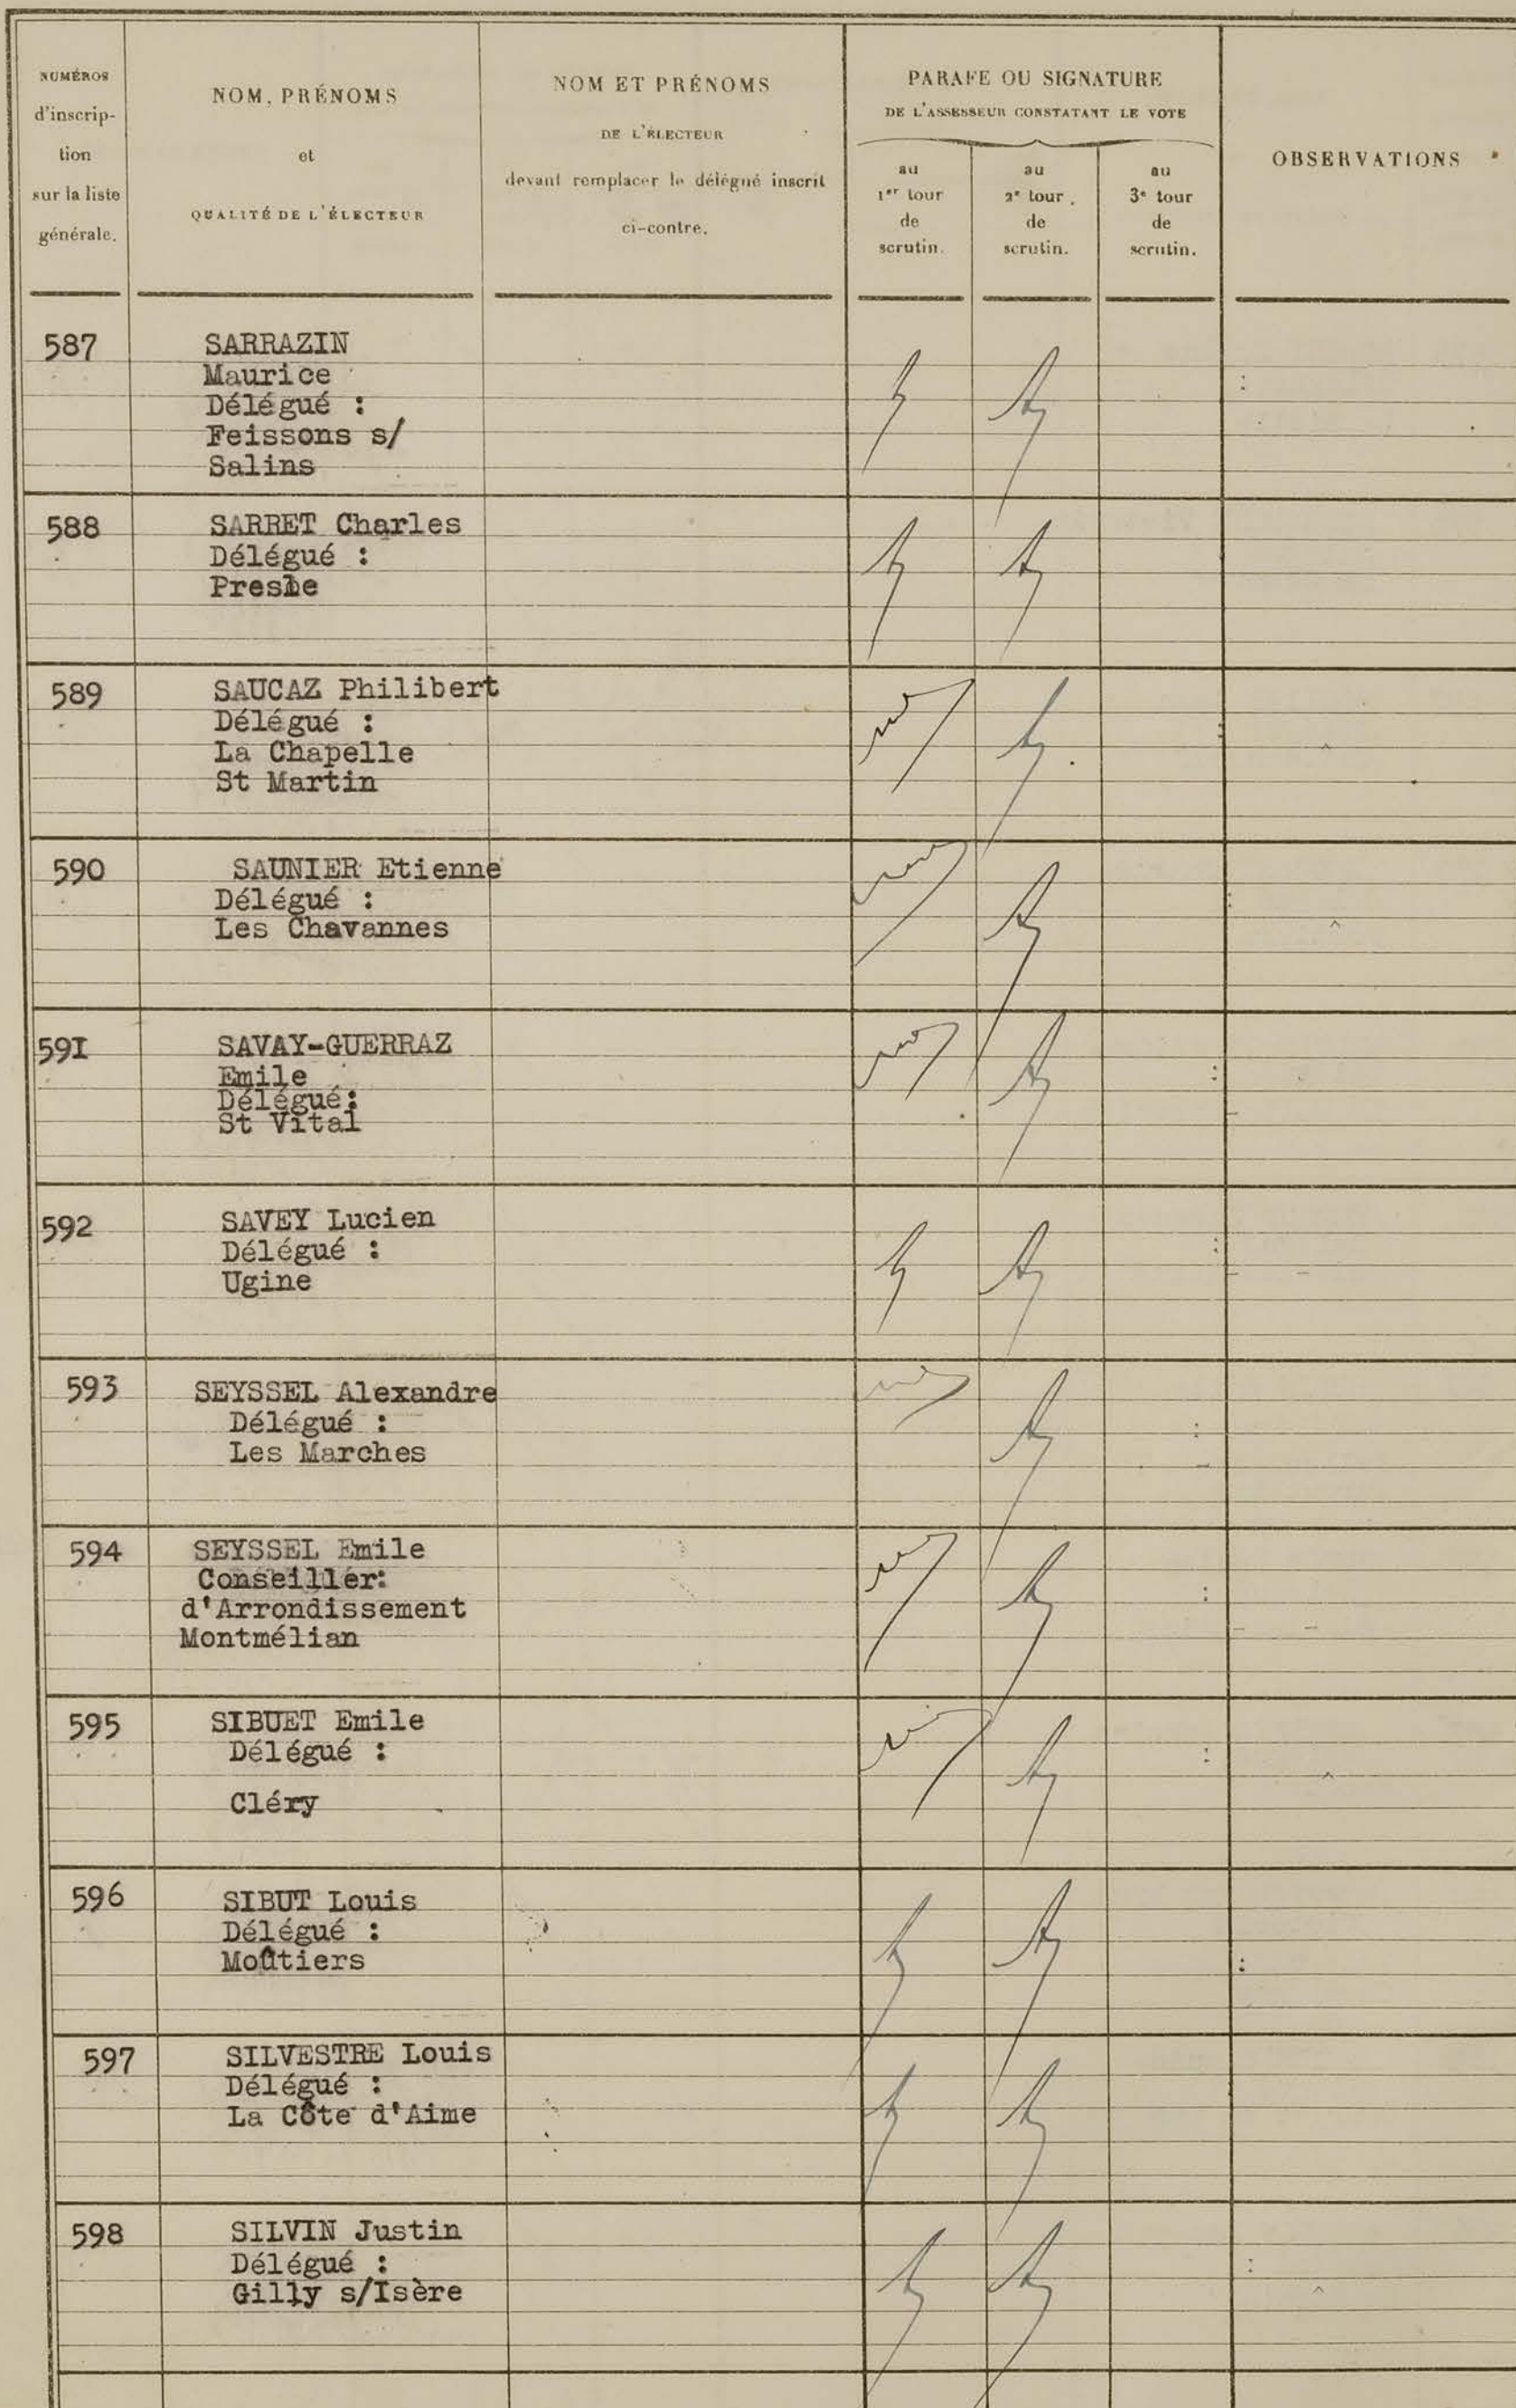 NUMÉROS
d'inscrip-
tion
sur la liste
générale.
NOM, PRÉNOMS
et
QUALITÉ DE L'ÉLECTEUR
NOM ET PRÉNOMS
DE L'ÉLECTEUR
devant remplacer le délégué inscrit
ci-contre.
PARAFE OU SIGNATURE
DE L'ASSESSEUR CONSTATANT LE VOTE
au
1er tour
de
scrutin.
au
2e tour.
de
scrutin.
au
3e tour
de
scrutin.
OBSERVATIONS
587
SARRAZIN
Maurice
Délégué :
Feissons s/
Salins
588
SARRET Charles
Délégué :
Presle
589
SAUCAZ Philibert
Délégué :
La Chapelle
St Martin
590
SAUNIER Etienne
Délégué :
Les Chavannes
59I
SAVAY-GUERRAZ
Emile
Délégué:
St Vital
592
SAVEY Lucien
Délégué :
Ugine
593
SEYSSEL Alexandre
Délégué :
Les Marches
594
SEYSSEL Emile
Conseiller:
d'Arrondissement
Montmélian
595
SIBUET Emile
Délégué :
Cléry
596
SIBUT Louis
Délégué :
Moûtiers
597
SILVESTRE Louis
Délégué :
La Côte d'Aime
598
SILVIN Justin
Délégué :
Gilly s/Isère